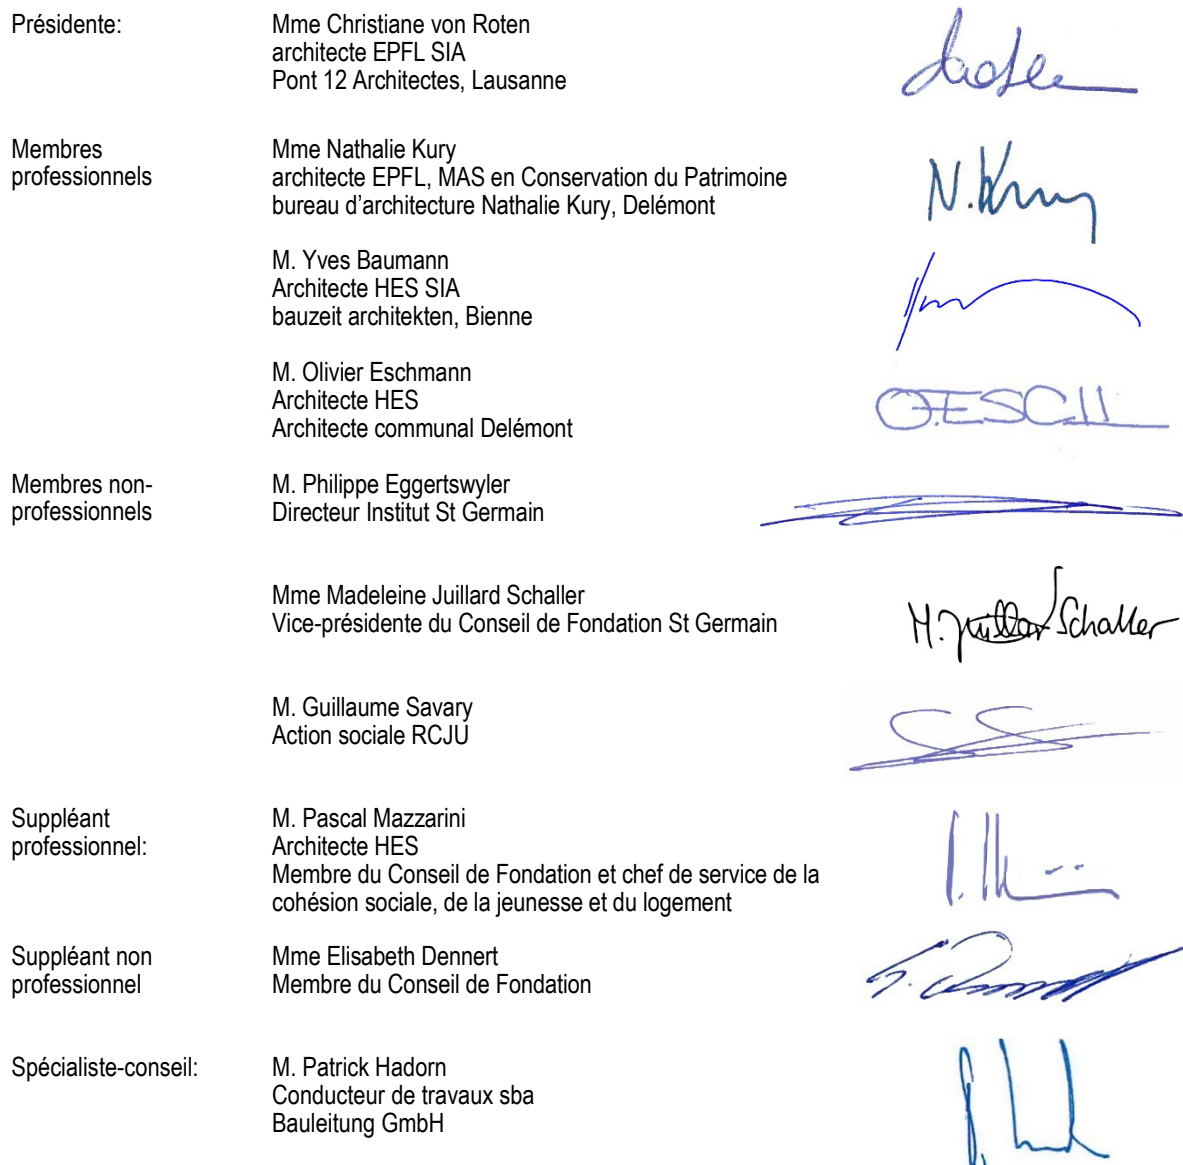 Présidente:
Mme Christiane von Roten
architecte EPFL SIA
Pont 12 Architectes, Lausanne
Membres
professionnels
Mme Nathalie Kury
architecte EPFL, MAS en Conservation du Patrimoine
bureau d'architecture Nathalie Kury, Delémont
N. Kury
M. Yves Baumann
Architecte HES SIA
bauzeit architekten, Bienne
M. Olivier Eschmann
Architecte HES
Architecte communal Delémont
O.ESCH
Membres non-
professionnels
M. Philippe Eggertswyler
Directeur Institut St Germain
Mme Madeleine Juillard Schaller
Vice-présidente du Conseil de Fondation St Germain
M. Juillard Schaller
M. Guillaume Savary
Action sociale RCJU
Suppléant
professionnel:
M. Pascal Mazzarini
Architecte HES
Membre du Conseil de Fondation et chef de service de la
cohésion sociale, de la jeunesse et du logement
Suppléant non
professionnel
Mme Elisabeth Dennert
Membre du Conseil de Fondation
Spécialiste-conseil:
M. Patrick Hadorn
Conducteur de travaux sba
Bauleitung GmbH